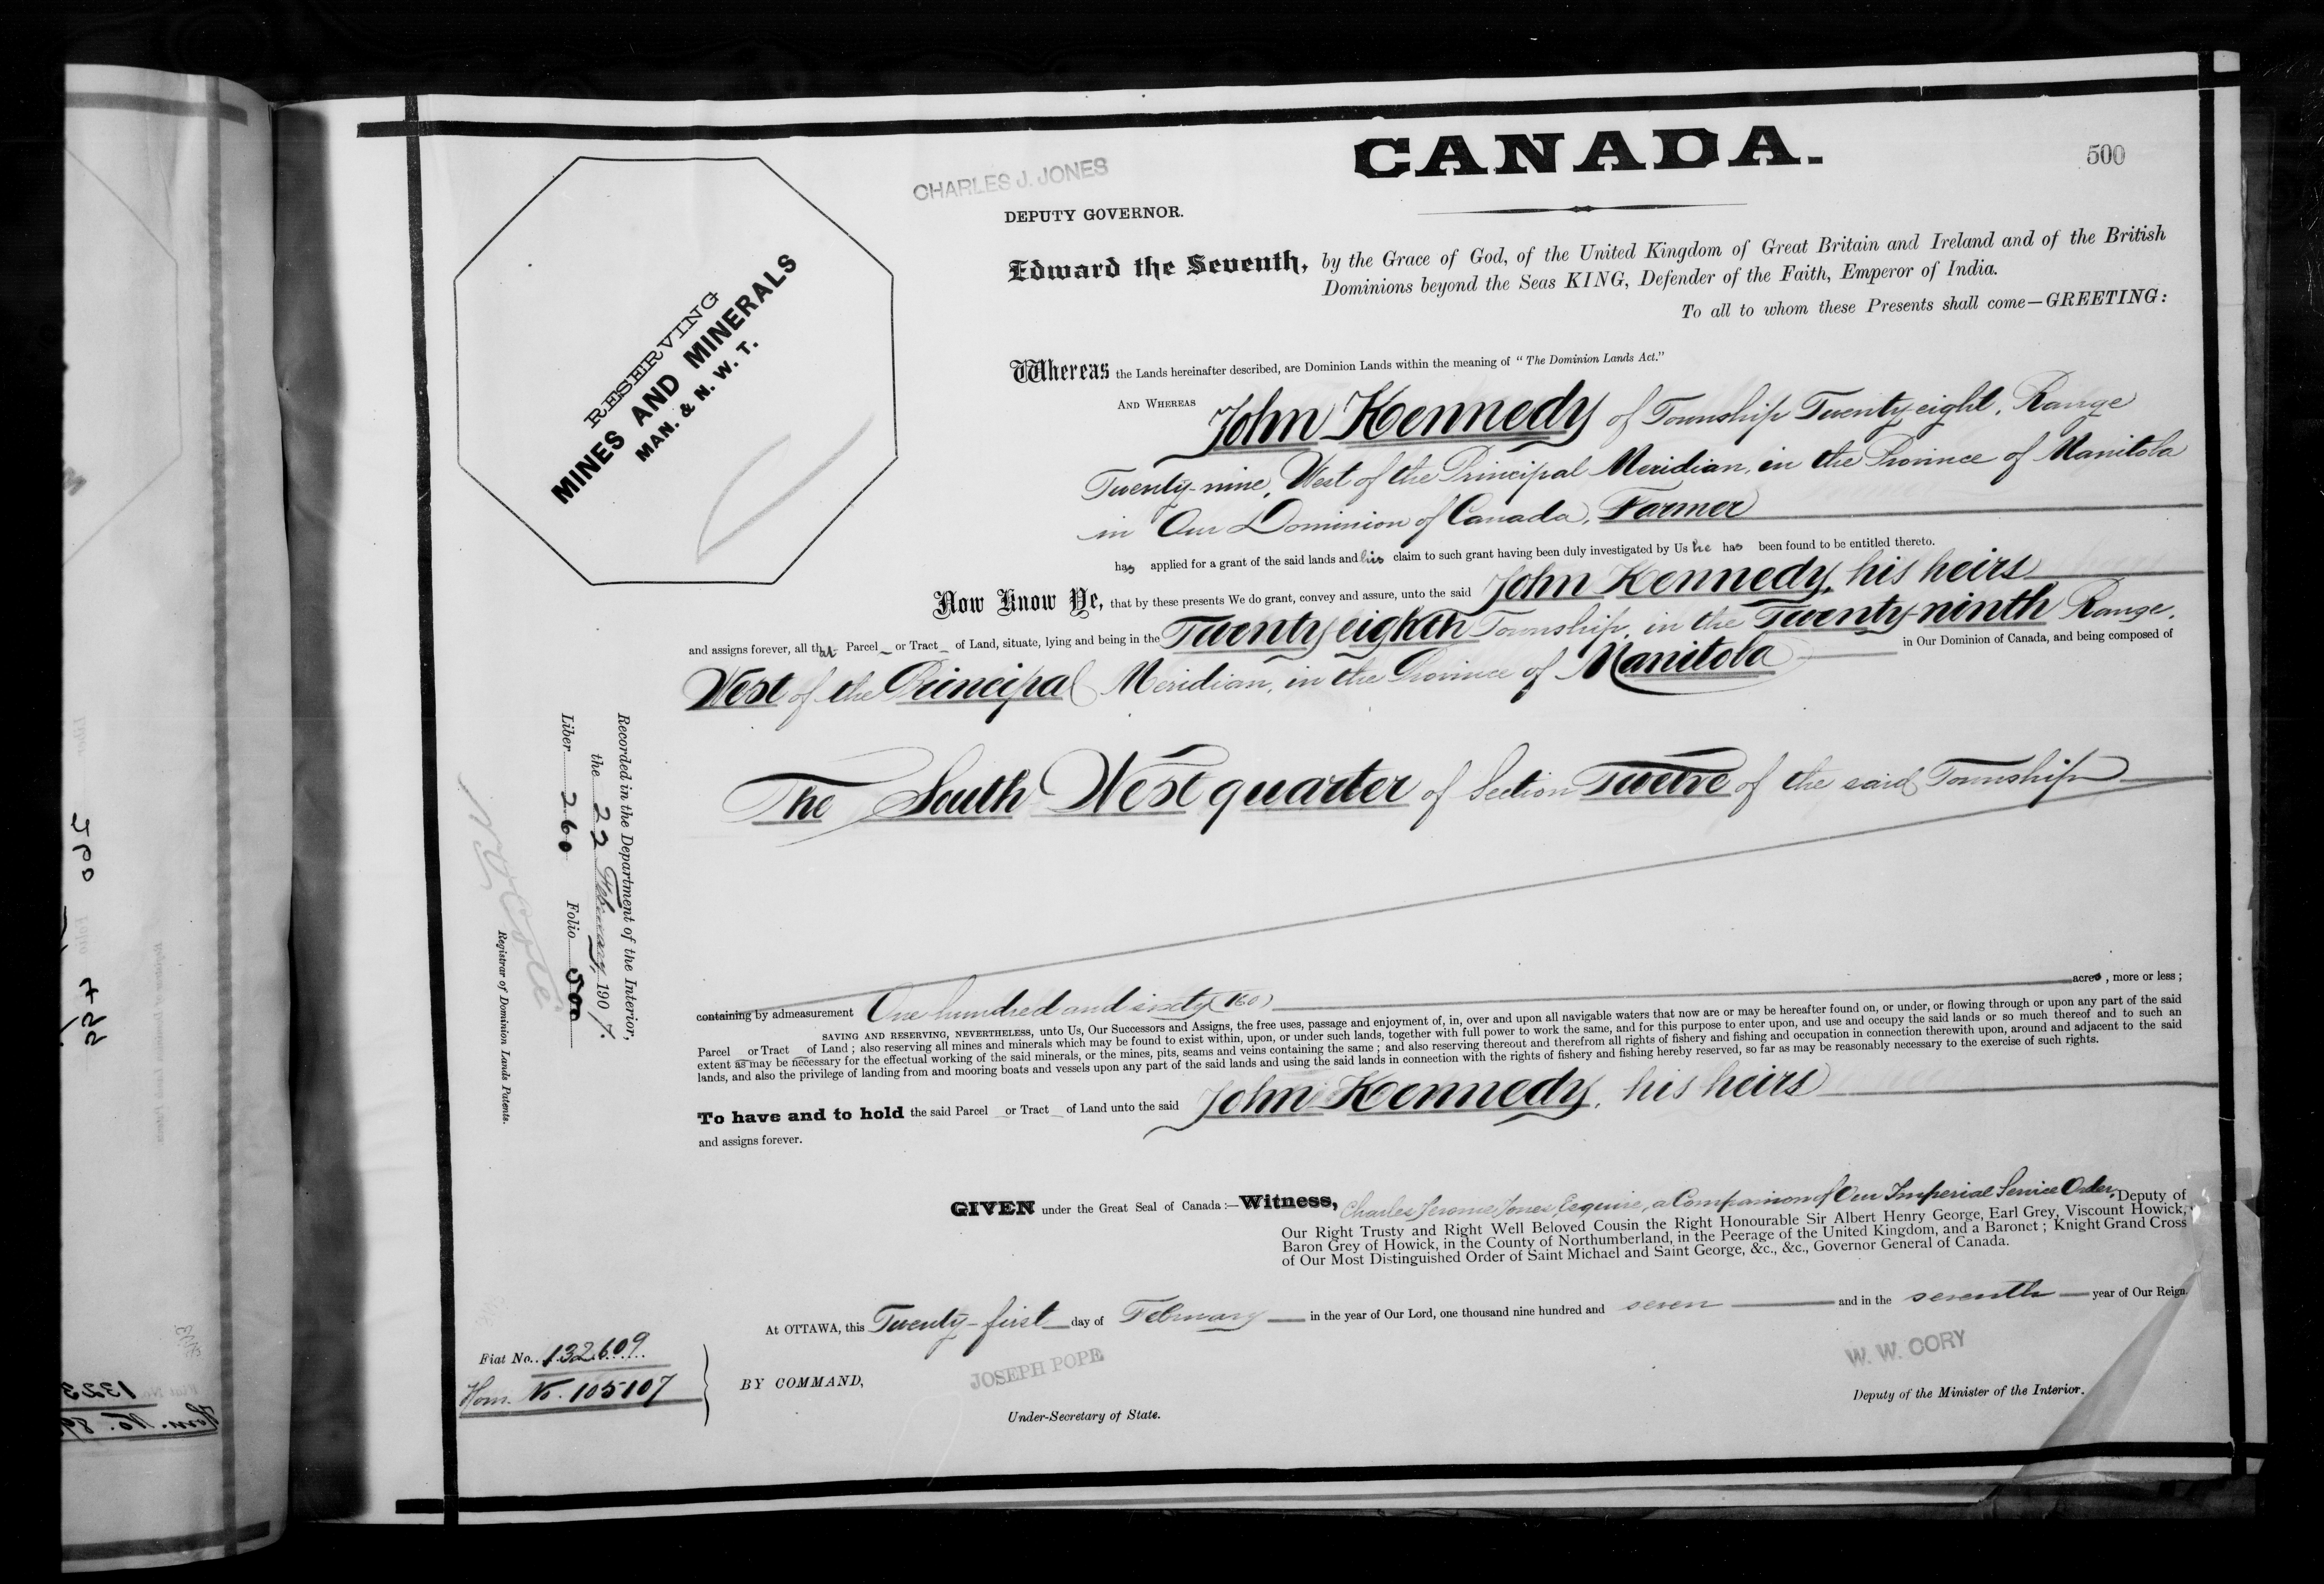 CANADA.
500
CHARLES J. JONES
DEPUTY GOVERNOR.
RESERVING
MINES AND MINERALS
MAN. & N. W. T.
Edward the Seventh, by the Grace of God, of the United Kingdom of Great Britain and Ireland and of the British
Dominions beyond the Seas KING, Defender of the Faith, Emperor of India.
To all to whom these Presents shall come—GREETING:
Whereas the Lands hereinafter described, are Dominion Lands within the meaning of "The Dominion Lands Act."
AND WHEREAS John Kennedy of Township Twenty eight, Range
Twenty-nine, West of the Principal Meridian, in the Province of Manitoba
in Our Dominion of Canada, Farmer
has applied for a grant of the said lands and his claim to such grant having been duly investigated by Us he has been found to be entitled thereto.
Now Know Ye, that by these presents We do grant, convey and assure, unto the said John Kennedy, his heirs
and assigns forever, all that Parcel or Tract of Land, situate, lying and being in the Twenty eighth Township, in the Twenty-ninth Range,
West of the Principal Meridian, in the Province of Manitoba in Our Dominion of Canada, and being composed of
The South West quarter of Section Twelve of the said Township
containing by admeasurement One hundred and sixty (160) acres, more or less;
SAVING AND RESERVING, NEVERTHELESS, unto Us, Our Successors and Assigns, the free uses, passage and enjoyment of, in, over and upon all navigable waters that now are or may be hereafter found on, or under, or flowing through or upon any part of the said
Parcel or Tract of Land; also reserving all mines and minerals which may be found to exist within, upon, or under such lands, together with full power to work the same, and for this purpose to enter upon, and use and occupy the said lands or so much thereof and to such an
extent as may be necessary for the effectual working of the said minerals, or the mines, pits, seams and veins containing the same; and also reserving thereout and therefrom all rights of fishery and fishing and occupation in connection therewith upon, around and adjacent to the said
lands, and also the privilege of landing from and mooring boats and vessels upon any part of the said lands and using the said lands in connection with the rights of fishery and fishing hereby reserved, so far as may be reasonably necessary to the exercise of such rights.
To have and to hold the said Parcel or Tract of Land unto the said John Kennedy, his heirs
and assigns forever.
GIVEN under the Great Seal of Canada:—Witness, Charles Jerome Jones Esquire, a Companion of Our Imperial Service Order, Deputy of
Our Right Trusty and Right Well Beloved Cousin the Right Honourable Sir Albert Henry George, Earl Grey, Viscount Howick,
Baron Grey of Howick, in the County of Northumberland, in the Peerage of the United Kingdom, and a Baronet; Knight Grand Cross
of Our Most Distinguished Order of Saint Michael and Saint George, &c., &c., Governor General of Canada.
At OTTAWA, this Twenty-first day of February in the year of Our Lord, one thousand nine hundred and seven and in the seventh year of Our Reign.
BY COMMAND,
JOSEPH POPE
Under-Secretary of State.
W. W. CORY
Deputy of the Minister of the Interior.
Fiat No. 132609
Hom. No. 105107
Recorded in the Department of the Interior,
the 22 February, 1907.
Liber 260 Folio 500
Registrar of Dominion Lands Patents.